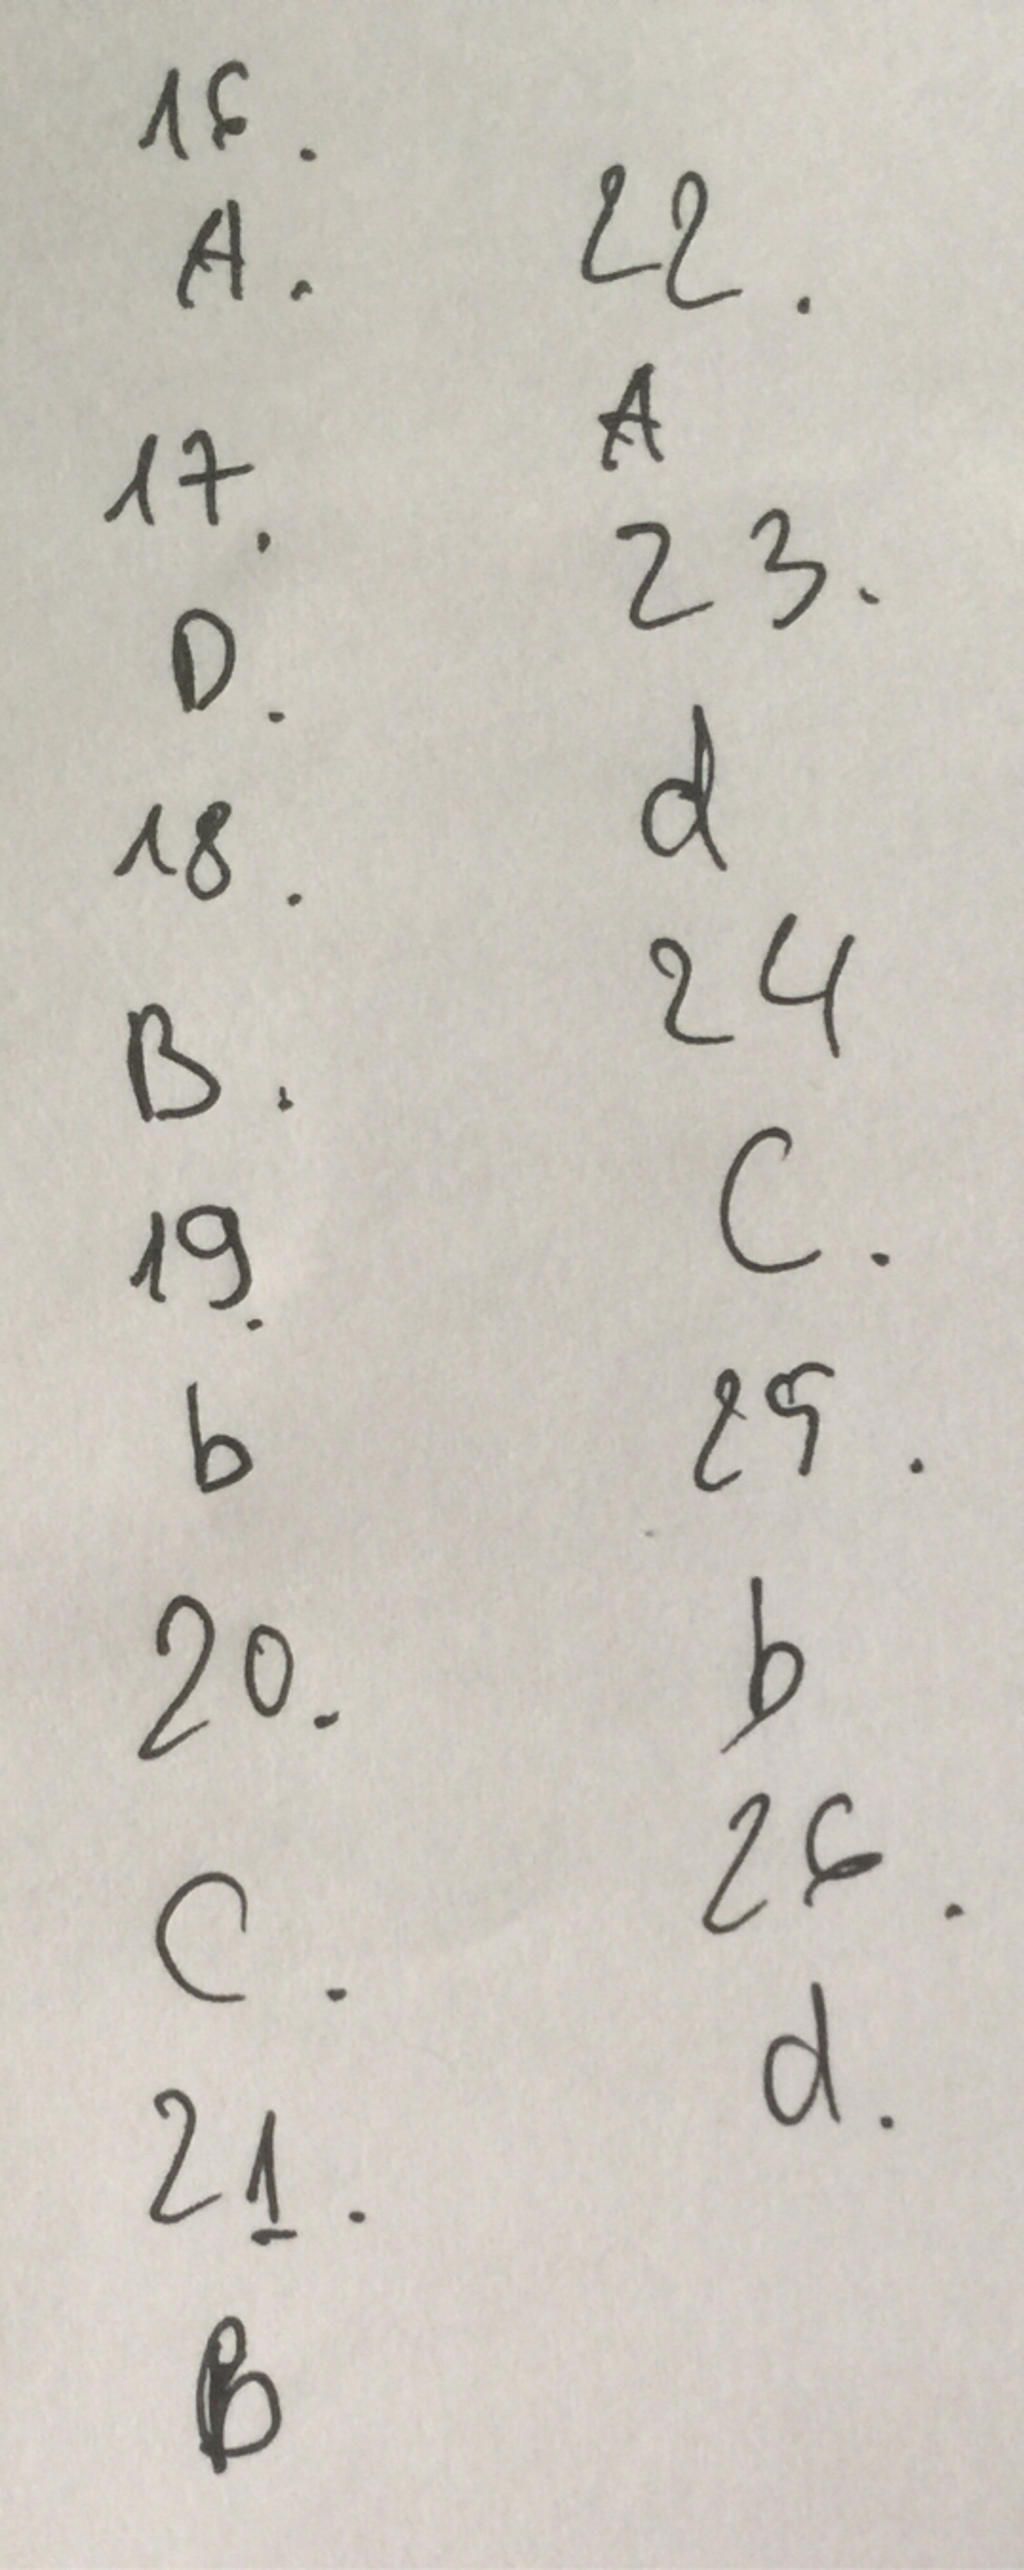 16.
A.
17.
D.
18.
B.
19.
b
20.
C.
21.
B
22.
A
23.
d
24
C.
25.
b
26.
d.